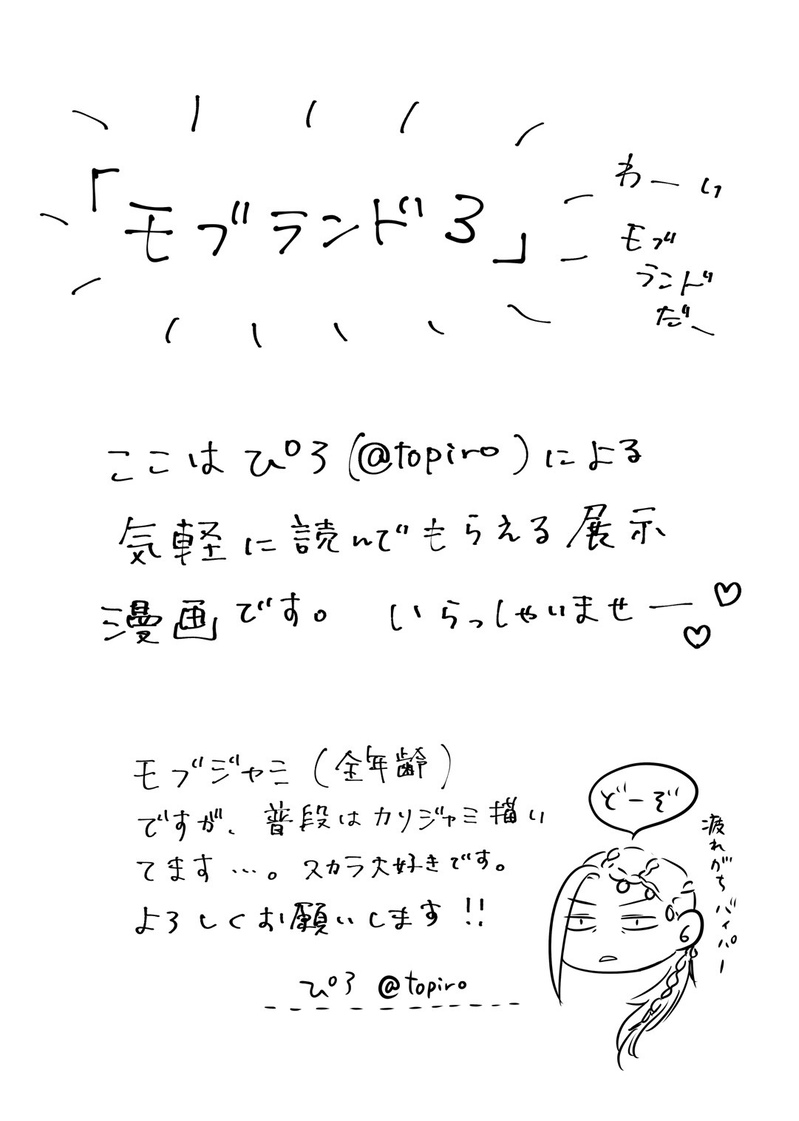 「モブランド3」
わーい
モブ
ランド
だ〜
ここは ぴろ(@topiro)による
気軽に読んでもらえる展示
漫画です。 いらっしゃいませー♡♡
モブジャミ(全年齢)
ですが、普段はカリジャミ描い
てます…。スカラ大好きです。
よろしくお願いします!!
ぴろ @topiro
どーぞ
疲れがちバイパー